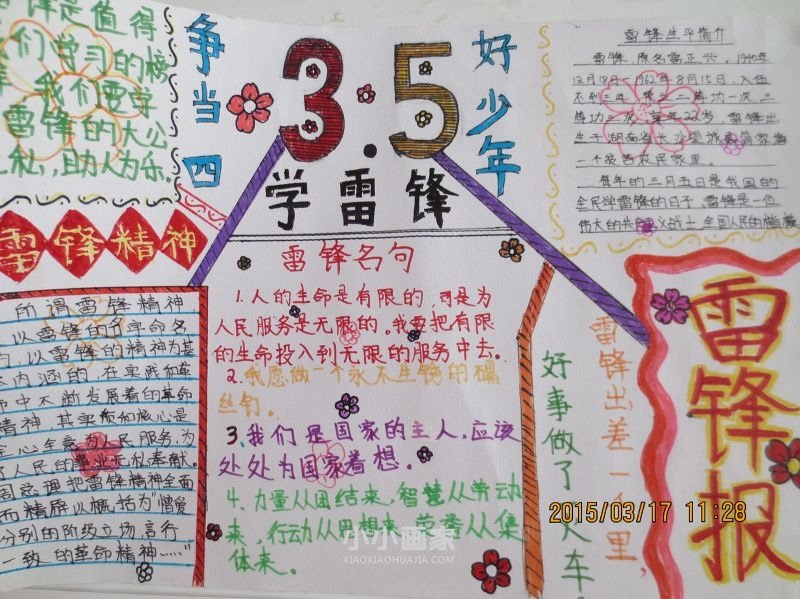 锋是值得
们学习的榜
样,我们要学
雷锋的大公
无私,助人为乐。
争当四
好少年
3.5
学雷锋
雷锋生平简介
雷锋,原名雷正兴,1940年
12月18日—1962年8月15日,入伍
不到三年,荣立二等功一次,三
等功二次,享年22岁,雷锋出
生于湖南省长沙望城县简家塘
一个贫苦农民家里。
每年的三月五日是我国的
全民学雷锋的日子,雷锋是一位
伟大的共产主义战士,全国人民的楷模
雷锋精神
所谓雷锋精神
以雷锋的名字命名
的,以雷锋的精神为基
本内涵的,在实践和革
命中不断发展着的革命
精神,其实质和核心是
全心全意为人民服务,为
了人民的事业无私奉献。
周总理把雷锋精神全面
而精辟以概括为“憎爱
分别的阶级立场,言行
一致的革命精神……”
雷锋名句
1.人的生命是有限的,可是为
人民服务是无限的。我要把有限
的生命投入到无限的服务中去。
2.我愿做一个永不生锈的螺
丝钉。
3.我们是国家的主人,应该
处处为国家着想。
4.力量从团结来,智慧从劳动
来,行动从思想来,荣誉从集
体来。
雷锋出差一千里,
好事做了一火车
雷锋报
小小画家
XIAOXIAOHUAJIA.COM
2015/03/17 11:28